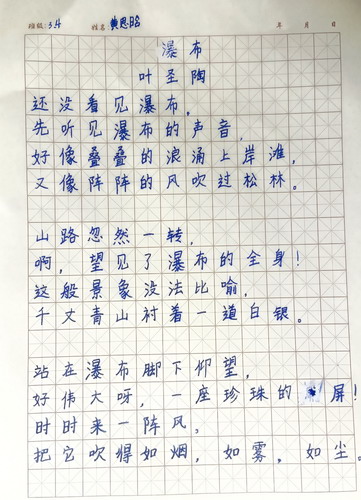 班级：3.4 姓名：黄恩晗 年 月 日
瀑布
叶圣陶
还没看见瀑布，
先听见瀑布的声音，
好像叠叠的浪涌上岸滩，
又像阵阵的风吹过松林。
山路忽然一转，
啊，望见了瀑布的全身！
这般景象没法比喻，
千丈青山衬着一道白银。
站在瀑布脚下仰望，
好伟大呀，一座珍珠的屏！
时时来一阵风，
把它吹得如烟，如雾，如尘。